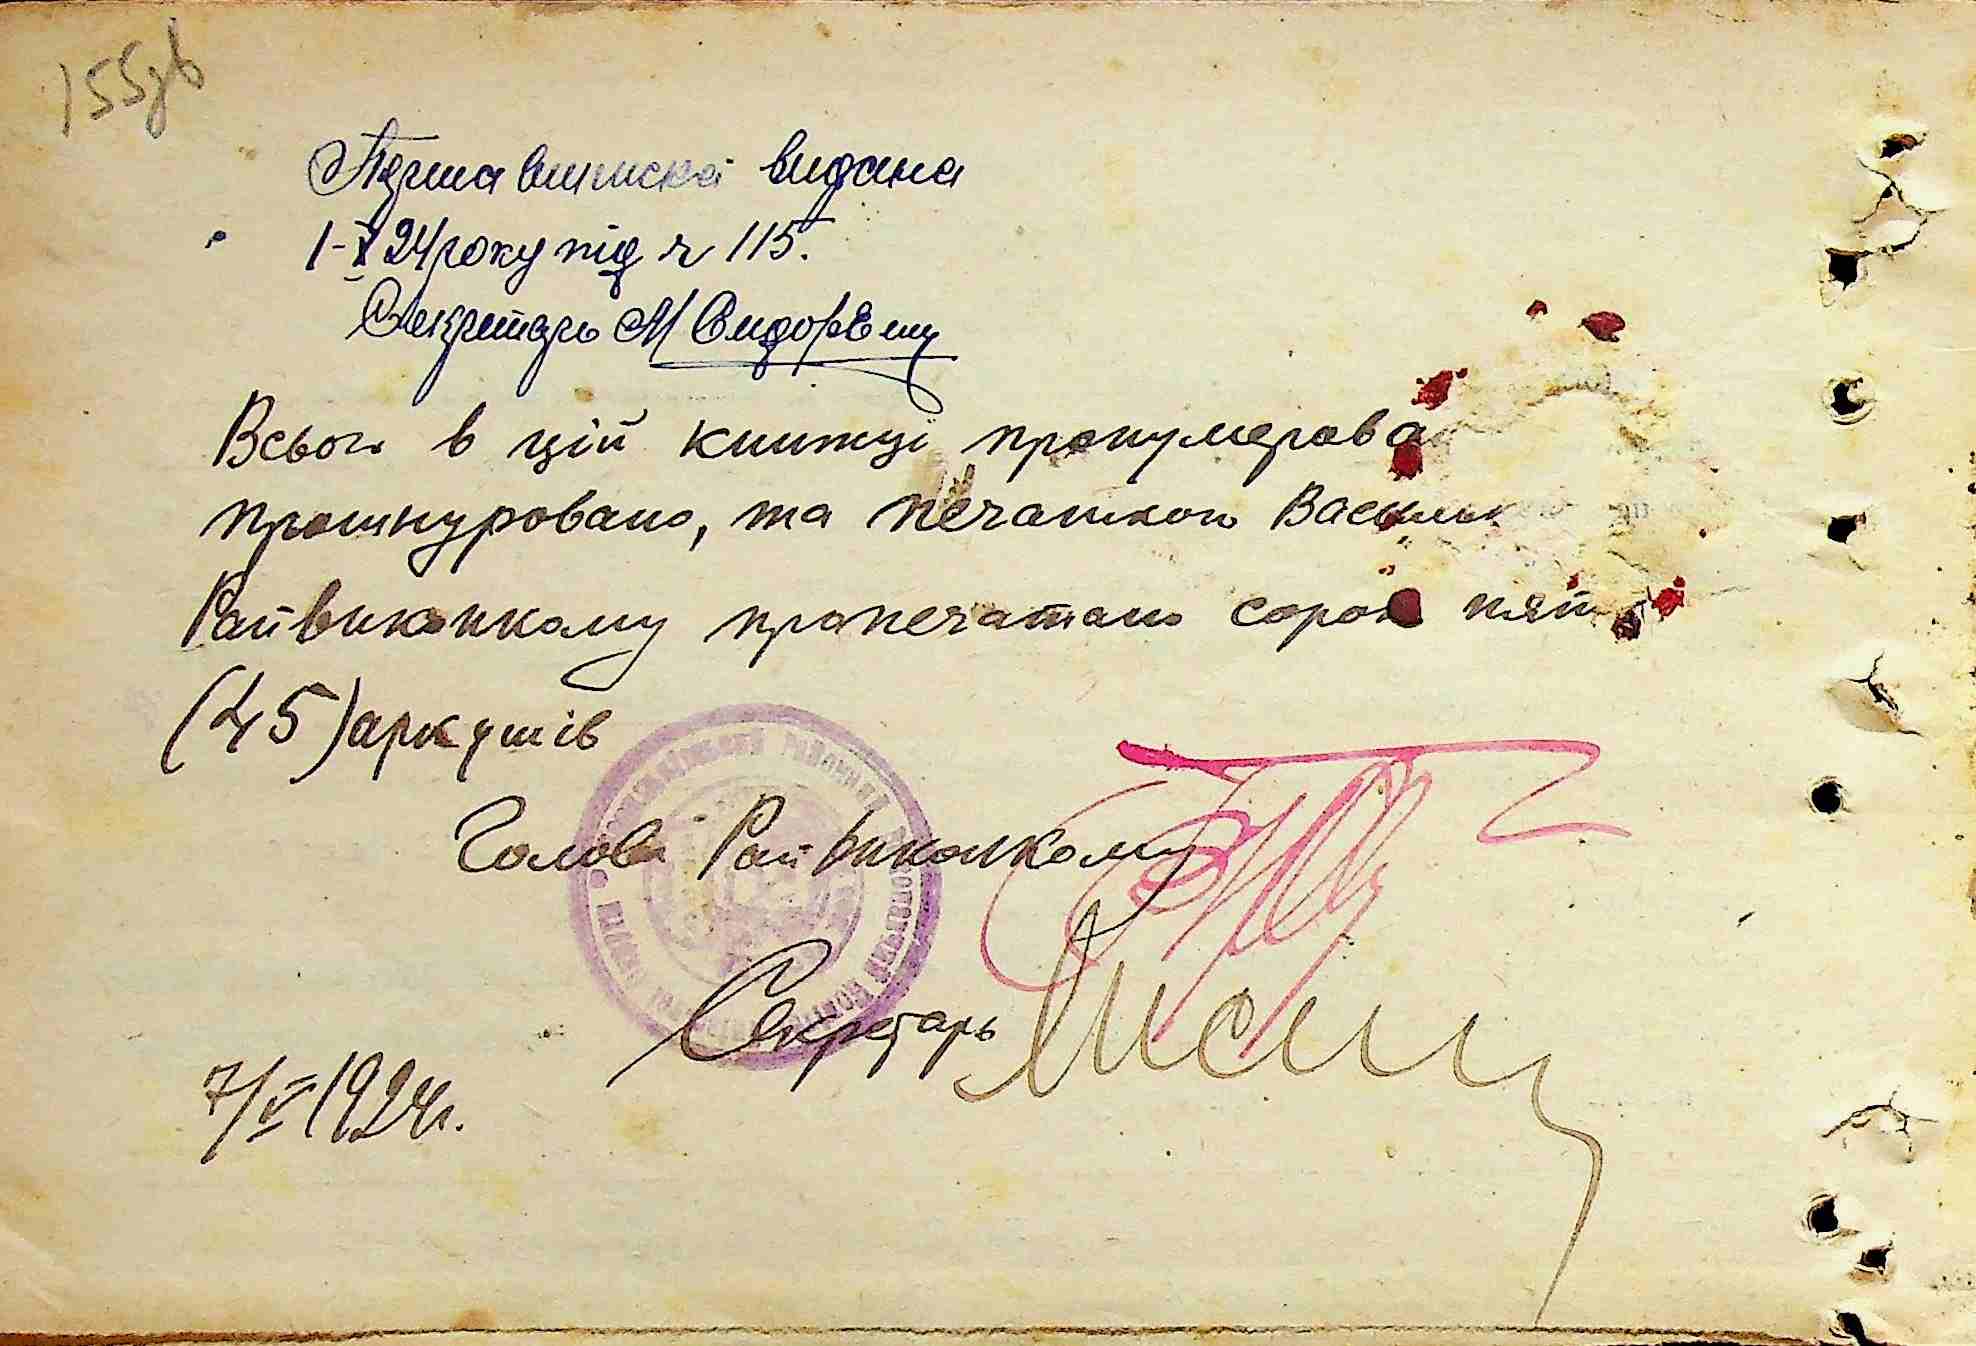 155зв
Перша виписка видана
1-X 24 року під ч 115.
Секретарь М Сидор
Всього в цій книжці пронумерова
прошнуровано, та печаткою Васильк
Райвиконкому пропечатано сорок пять
(45) аркушів
Голова Райвиконкому
Секретарь
7/V 1924 р.
РАЙОННИЙ ВИКОНАВЧИЙ КОМІТЕТ